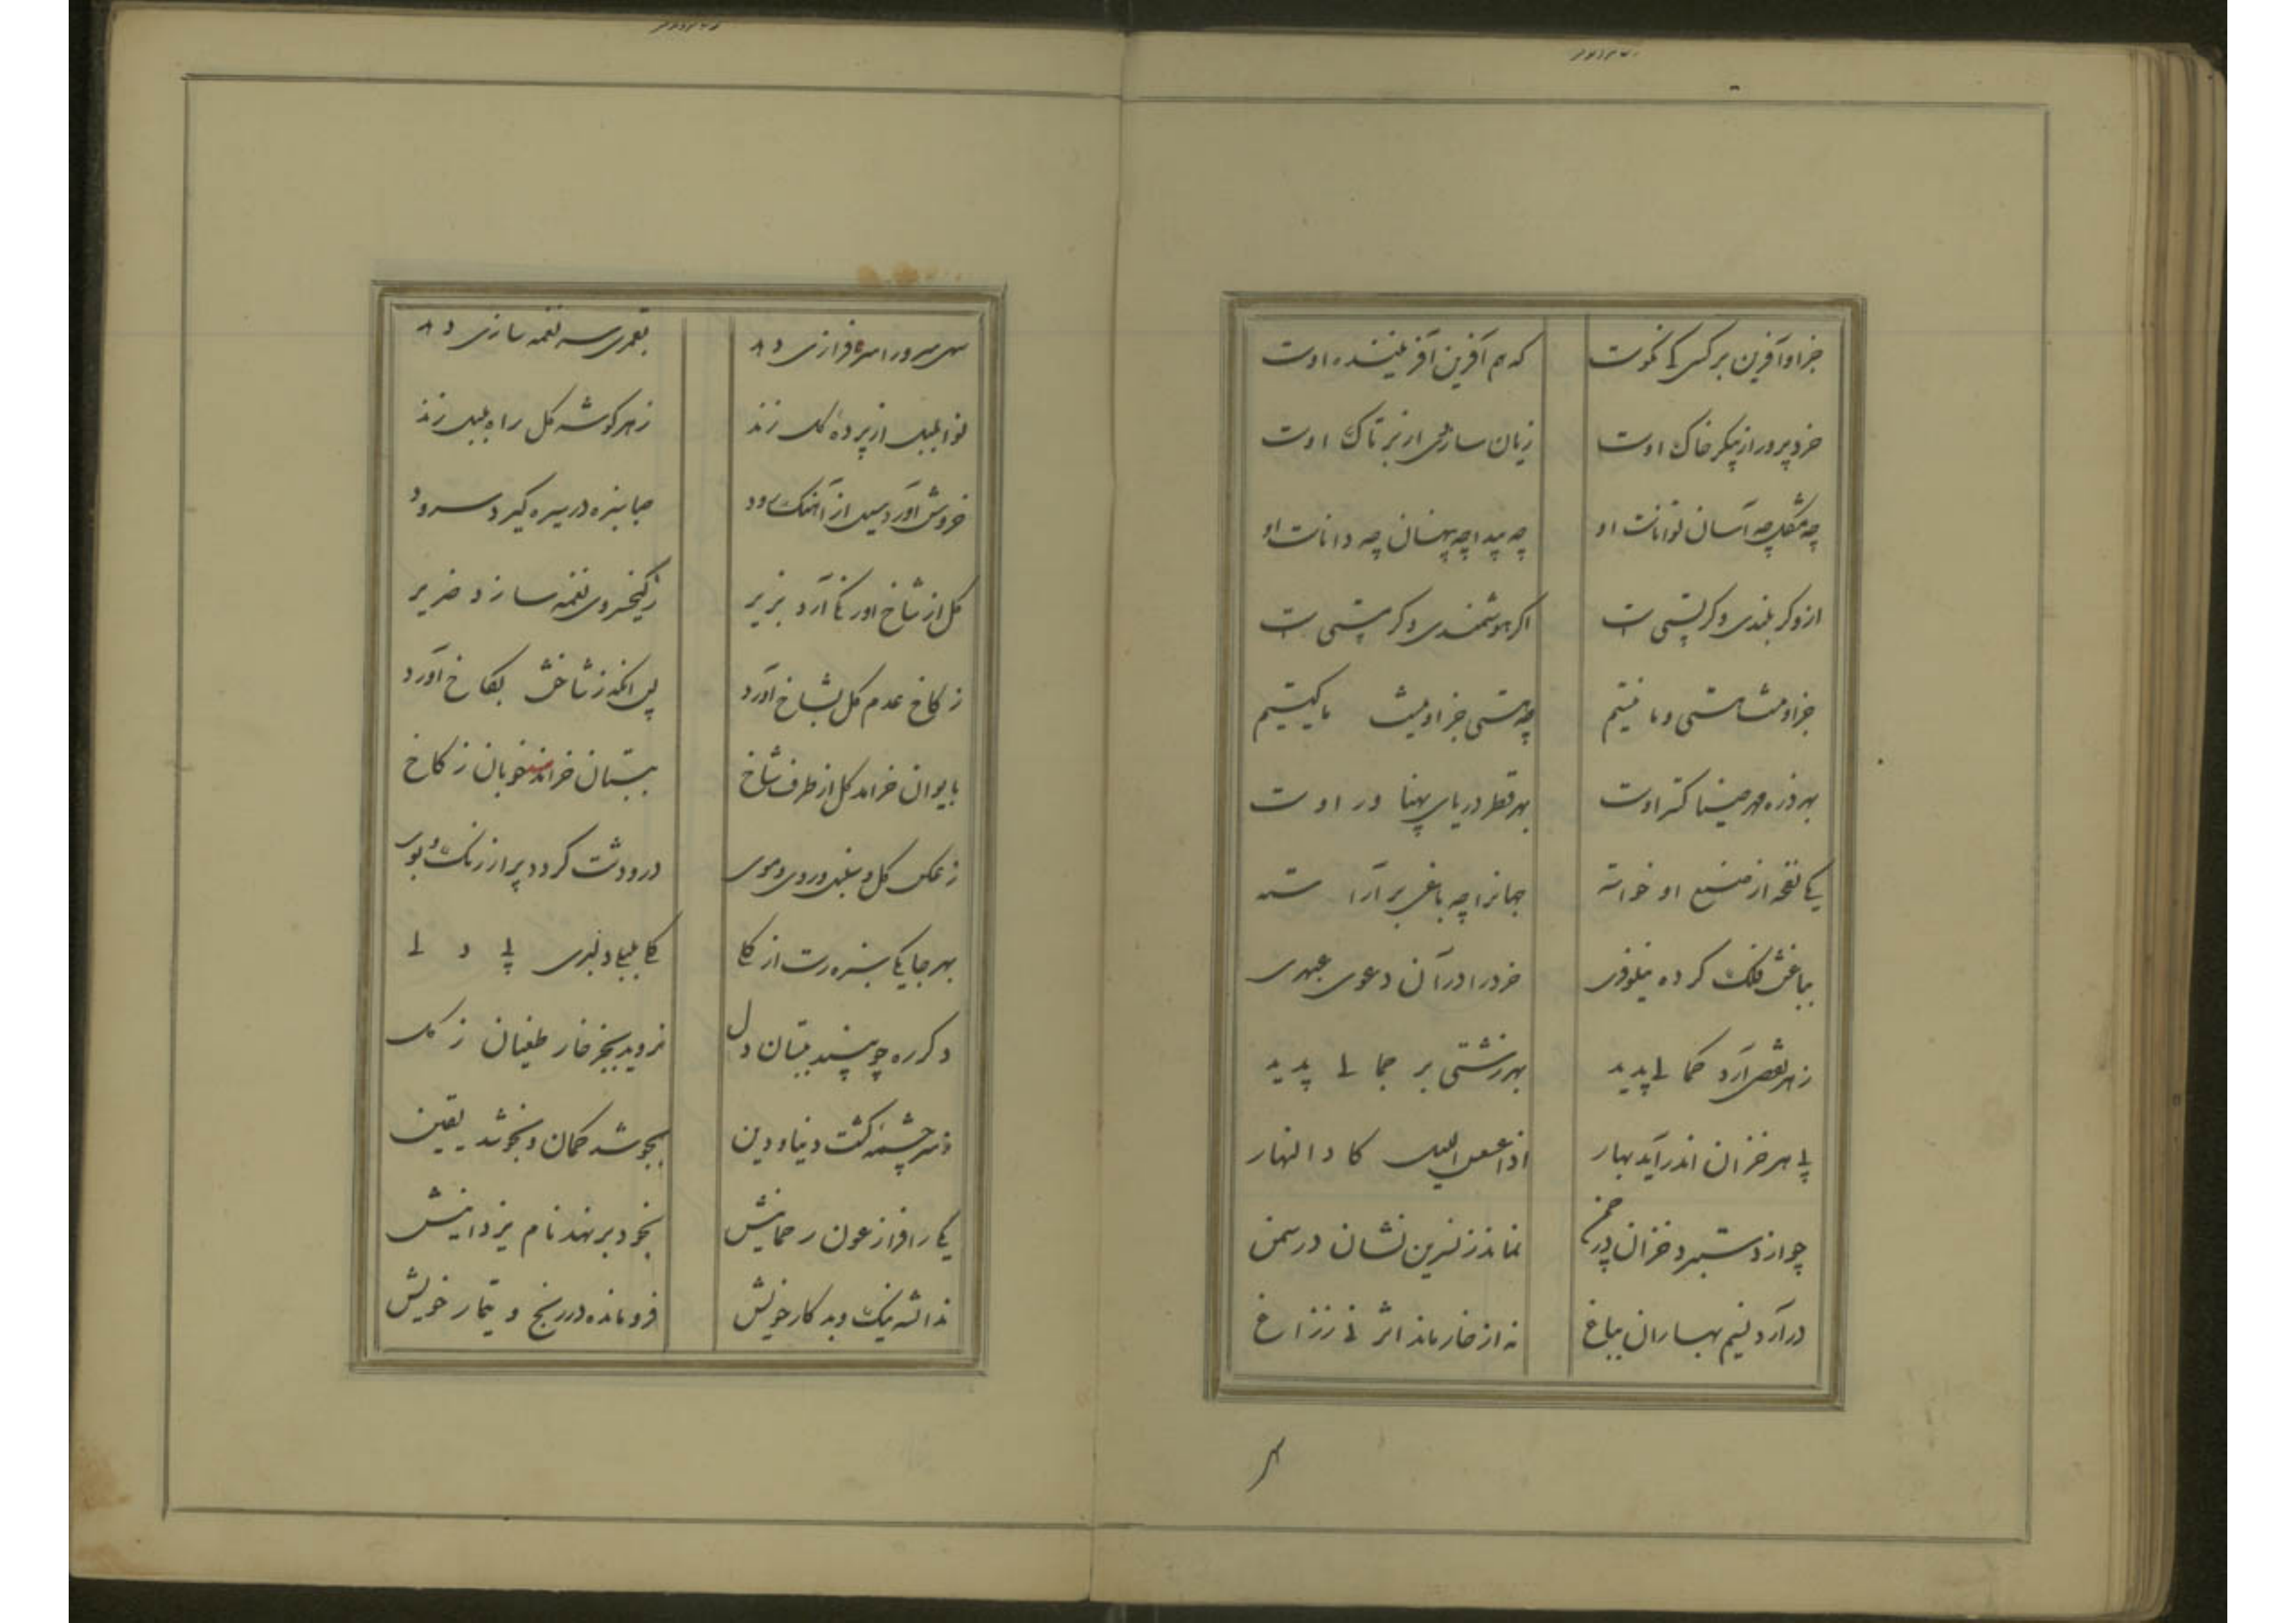 جز او آفرین بر کسی کی نکوست
که هم آفرین آفریننده اوست
خرد پرور از پیکر خاک اوست
زبان ساز می از بر تاک اوست
چه مشکل چه آسان تواناست او
چه پیدا چه پنهان چه داناست او
ازو گر بلندی و گر پستی است
اگر هوشمندی و گر مستی است
جز او منشا هستی و ما نیستیم
چو هستی جز او نیست ما کیستیم
بهر ذره مهر ضیا گستر اوست
بهر قطره دریای پهنا ور اوست
یکی نفحه از صنع او خواسته
جهانرا چه باغی بر آراسته
بباغش فلک کرده نیلوفری
خرد را در آن دعوی عبهری
ز هر نقص آرد کمالی پدید
بهر زشتی بر جمالی پدید
پی هر خزان اندر آید بهار
اذا عسعس اللیل کاد النهار
چو از دستبرد خزان در چمن
نماند ز نسرین نشان در سمن
در آرد نسیم بهاران بباغ
نه از خار ماند اثر نی ز زاغ
سهی سرو را سرفرازی دهد
بقمری سر نغمه سازی دهد
نوا بلبل از پرده گل زند
ز هر گوشه گل راه بلبل زند
خروش آورد سیل از آهنگ رود
صبا سبزه در سبزه گیرد سرود
گل از شاخ اورنگ آرد بزیر
ز کیخسروی نغمه سازد صریر
ز کاخ عدم گل بشاخ آورد
پس آنکه ز شاخش بکاخ آورد
بایوان خرامد گل از طرف شاخ
ببستان خرامند خوبان ز کاخ
ز عکس گل و سنبل و روی و موی
در و دشت گردد پر از رنگ و بوی
بهر جا یکی سبزه رست از گلی
دگر ره چو بیند ببستان دل
نروید بجز خار طغیان ز گل
ز سرچشمه گشت دنیا و دین
بجوشد گمان و بخوشد یقین
یکی را فراز عون رحمانیش
بخود بر نهد نام یزدانیش
ندانسته نیک و بد کار خویش
فرو مانده در رنج و تیمار خویش